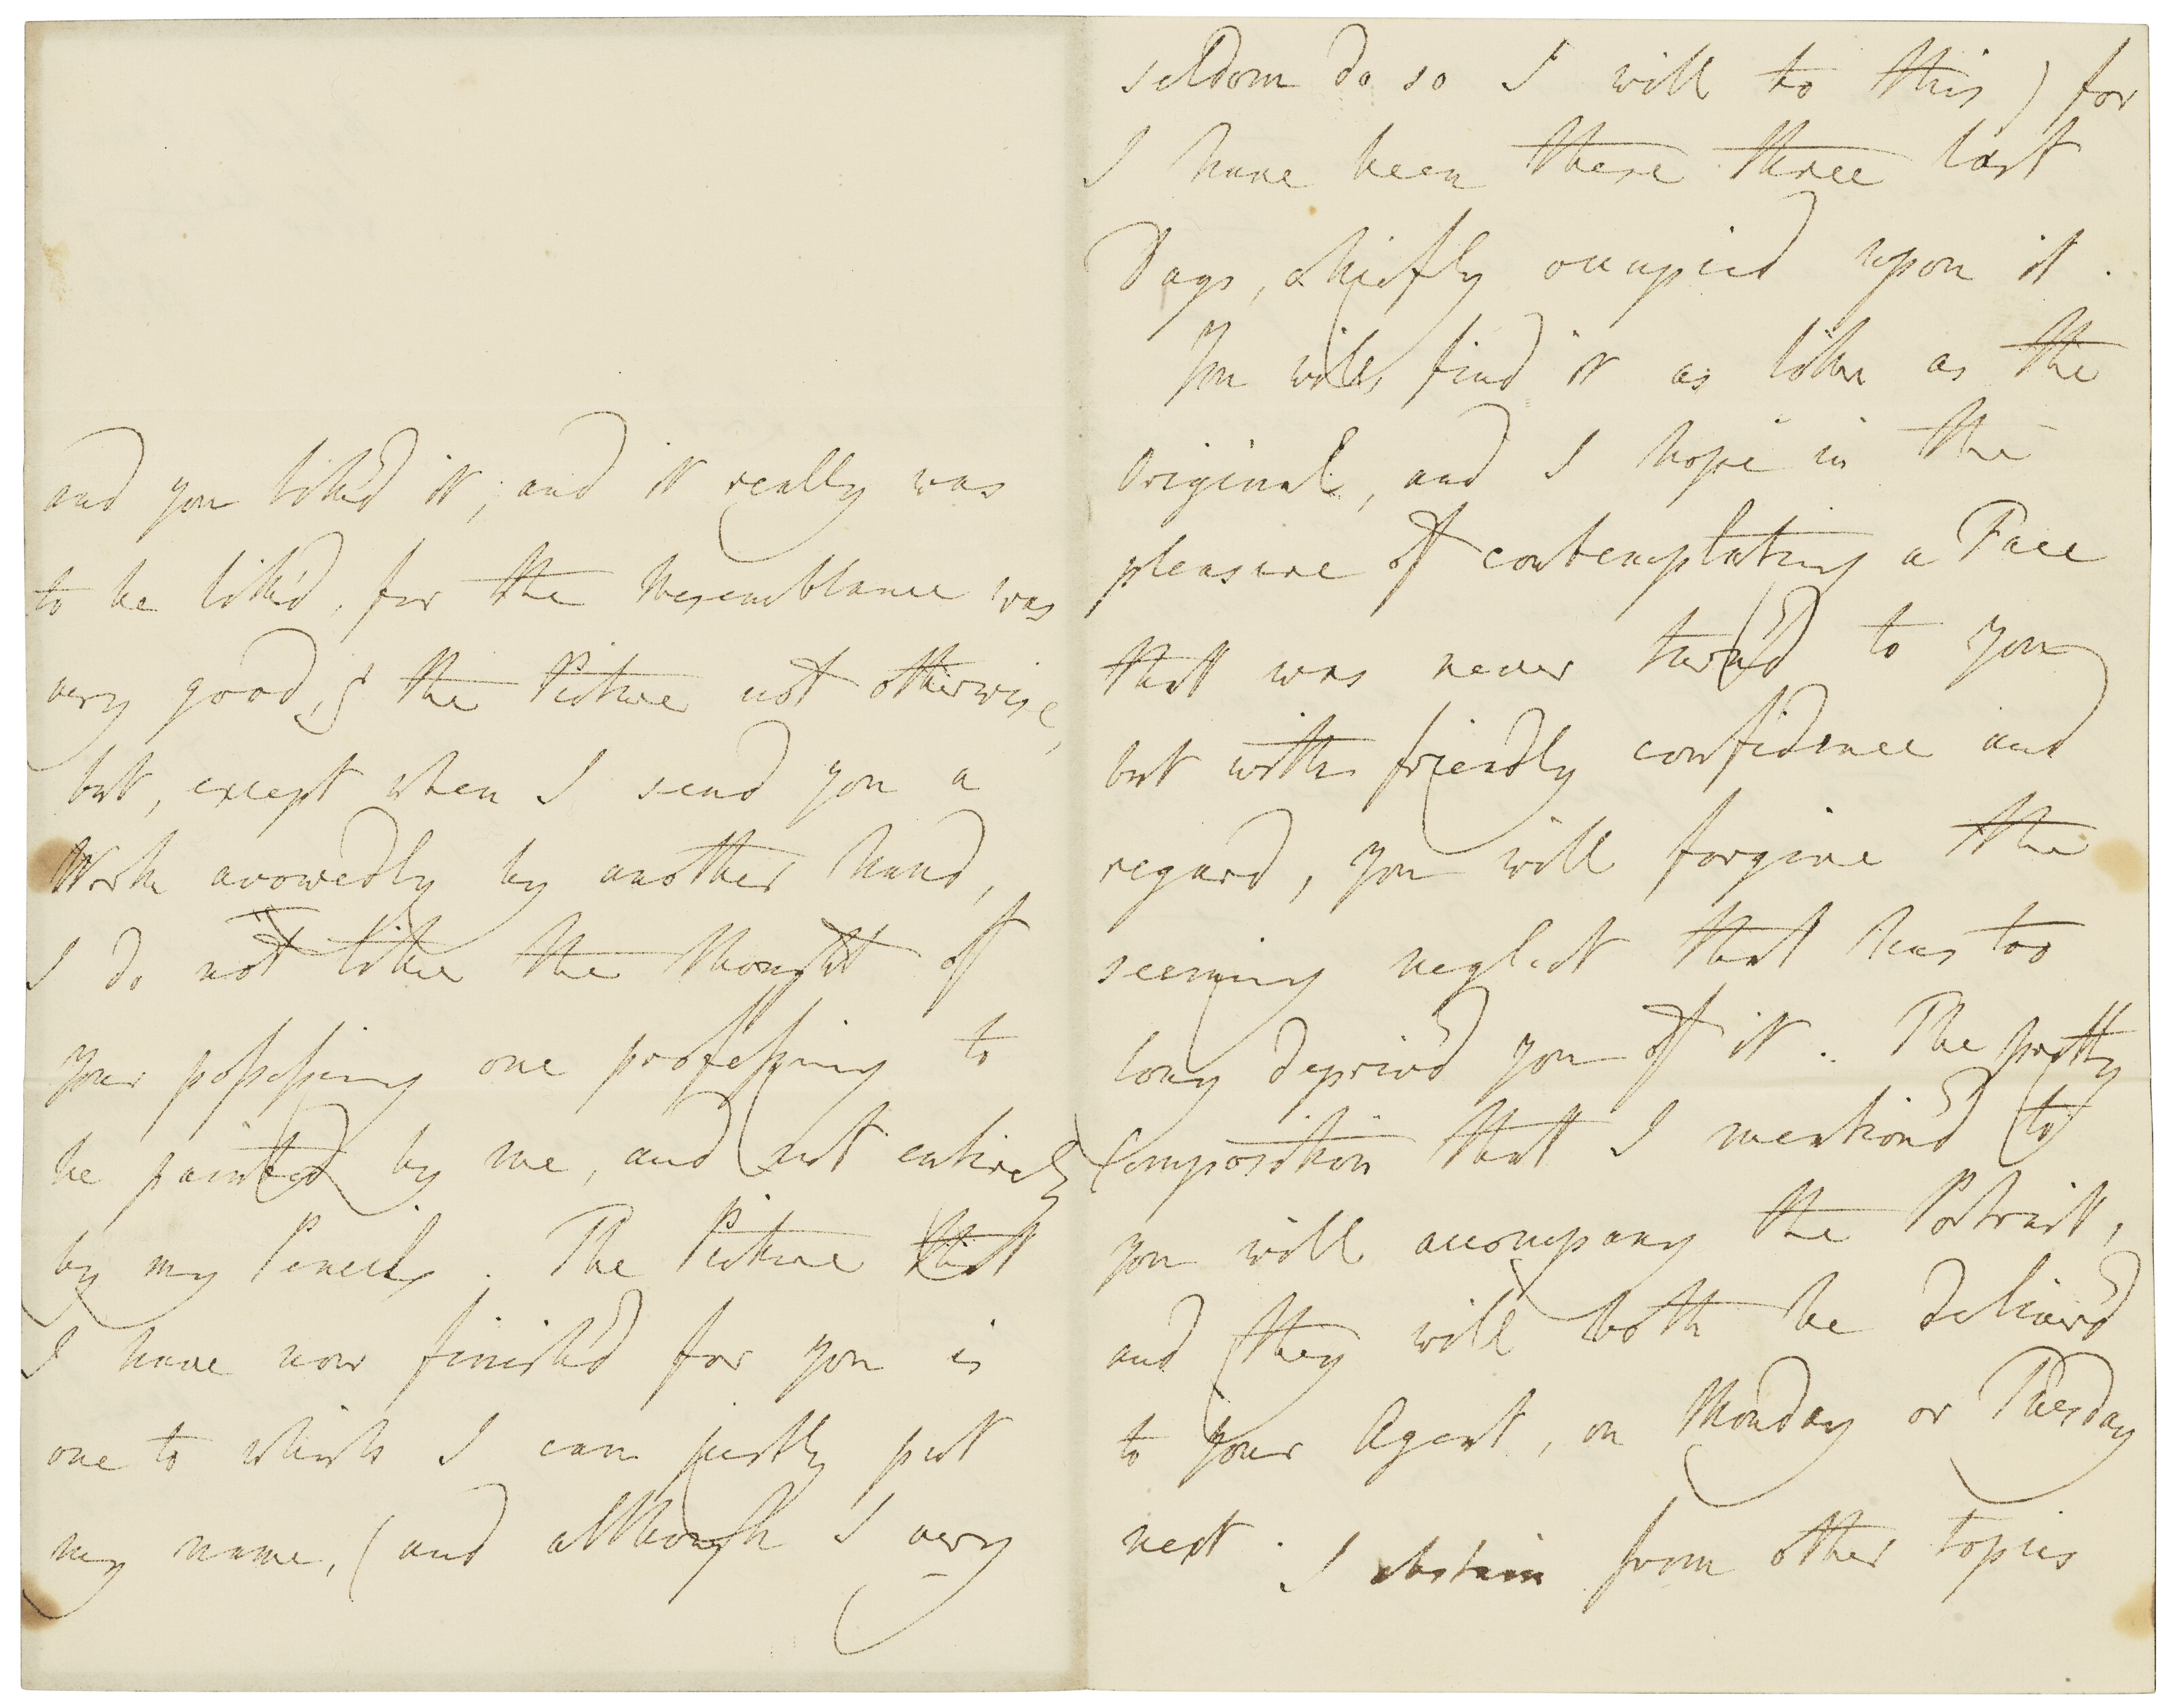 and you lik'd it; and it really was
to be lik'd, for the Resemblance was
very good, & the Picture not otherwise,
but, except when I send you a
Work avowedly by another hand,
I do not like the thought of
your possessing one professing to
be painted by me, and not entirely
by my Pencils. The Picture that
I have now finish'd for you is
one to which I can justly put
my name, (and although I very
seldom do so I will to this) for
I have been these three last
Days, chiefly occupied upon it.
You will find it as like as the
Original, and I hope in the
pleasure of contemplating a Face
that was never turn'd to you
but with friendly confidence and
regard, you will forgive the
seeming neglect that has too
long depriv'd you of it. The pretty
Composition that I mention'd to
you will accompany the Portrait,
and they will both be deliver'd
to your Agent, on Monday or Tuesday
next. I abstain from other topics